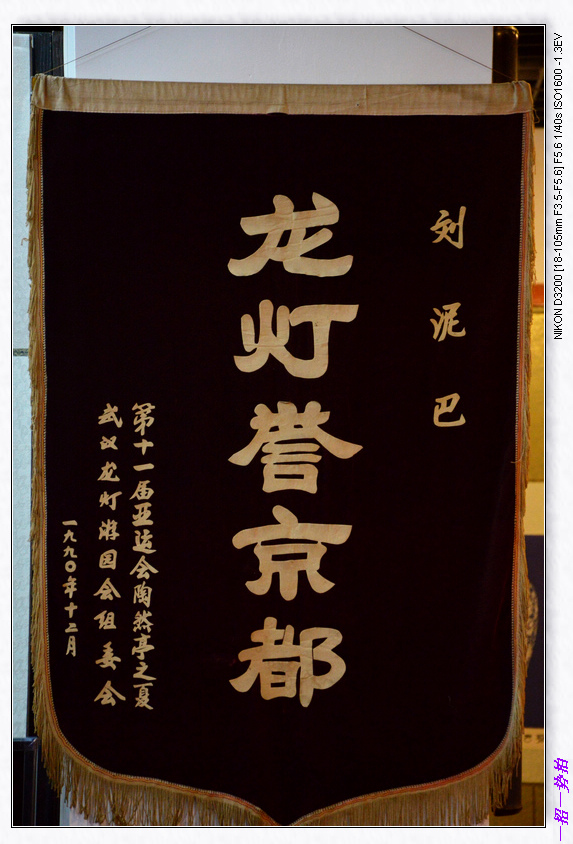 刘泥巴
龙灯誉京都
第十一届亚运会陶然亭之夏
武汉龙灯游园会组委会
一九九〇年十二月
NIKON D3200 [18-105mm F3.5-F5.6] F5.6 1/40s ISO1600 -1.3EV
一招一势拍